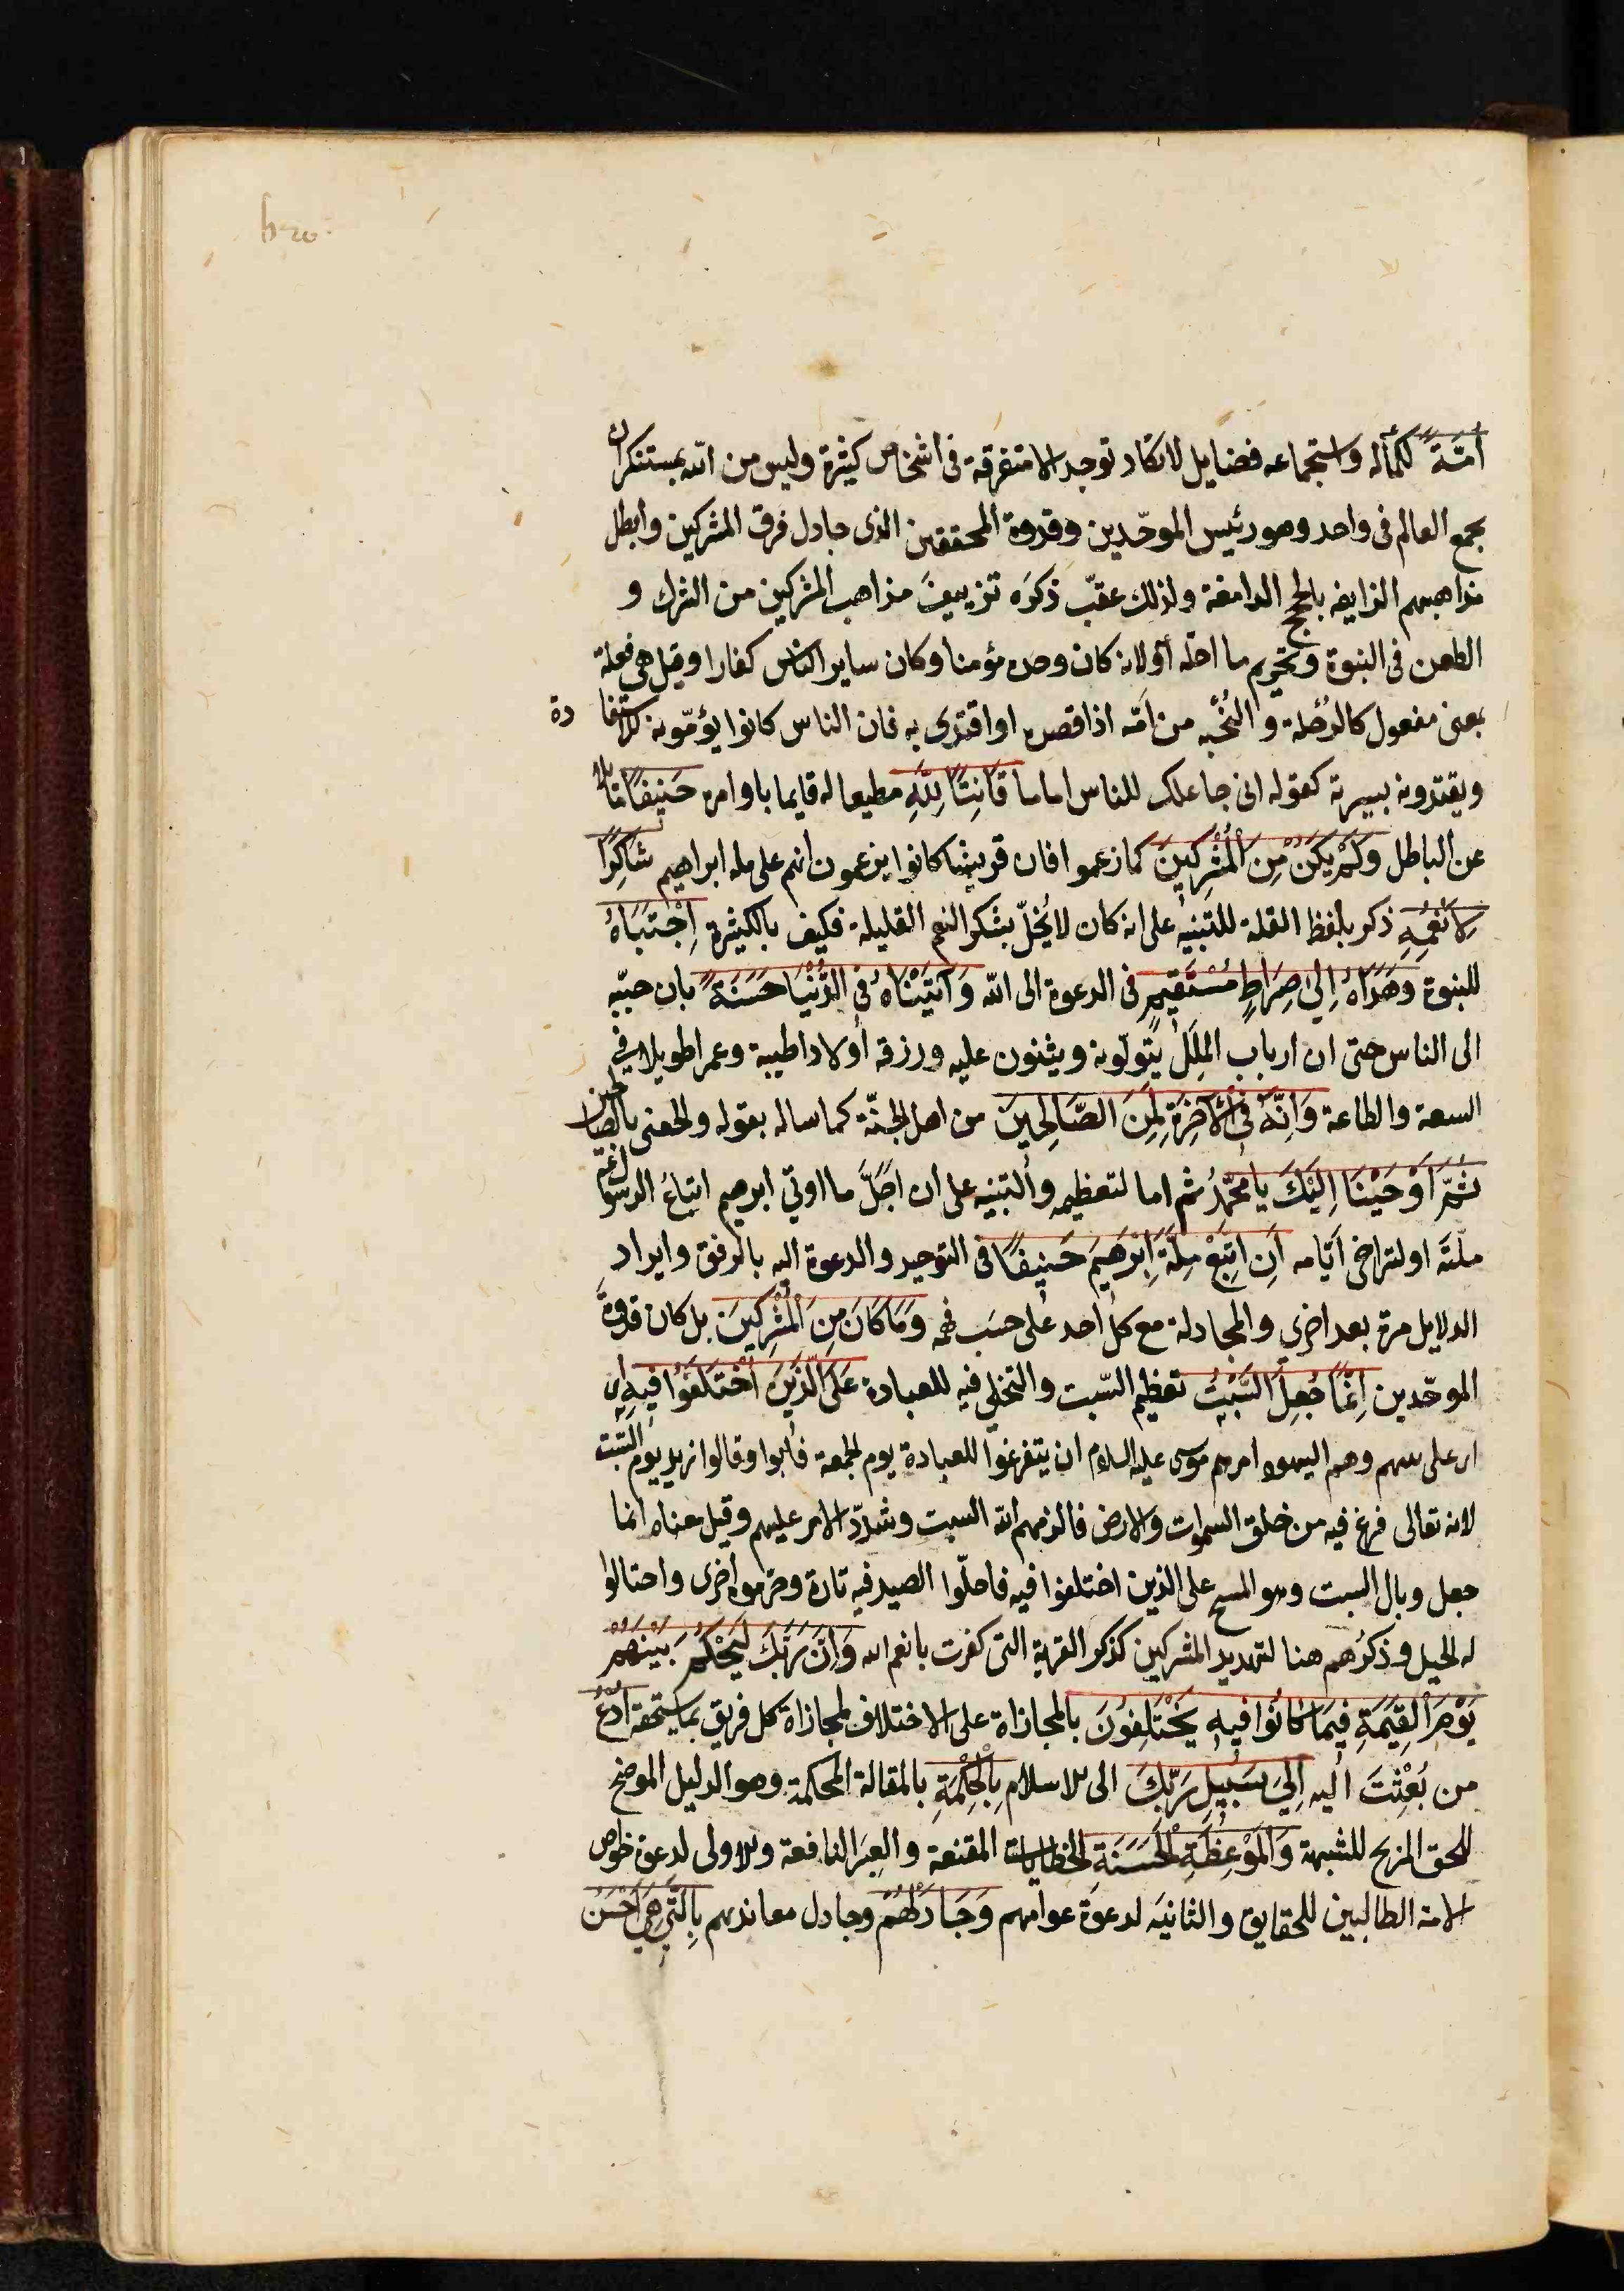 أُمَّةً لكماله واستجماعه فضايل لا تكاد توجد الا متفرقة في اشخاص كثيرة وليس من الله بمستنكر ان
يجمع العالم في واحد وهو رئيس الموحّدين وقدوة المحققين الذى جادل فرق المشركين وابطل
مذاهبهم الزايفه بالحجج الدامغة ولذلك عقّب ذكرَه تزييفَ مذاهب المشركين من الشرك و
الطعن في النبوة وتحريم ما احله أو لانه كان وحده مؤمنا وكان ساير الناس كفارا وقيل هي فعلة
بمعنى مفعول كالرُحْلة والنُخْبه من اَمّه اذا قصده او اقتدى به فان الناس كانوا يؤمّونه للاستفادة
ويقتدونه بسيرته كقوله انى جاعلك للناس اماما قَانِتًا لِلّٰهِ مطيعا له قايما باوامره حَنِيفًا مائلا
عن الباطل وَلَمْ يَكُنْ مِنَ الْمُشْرِكِينَ كما زعموا فان قريشا كانوا يزعمون انهم على مله ابراهيم شَاكِرًا
لِاَنْعُمِهِ ذكر بلفظ القلة للتنبيه على انه كان لا يُخلّ بشكر النعم القليلة فكيف بالكثيرة اِجْتَبَاهُ
للنبوة وَهَدَاهُ اِلَى صِرَاطٍ مُسْتَقِيمٍ في الدعوة الى الله وَآتَيْنَاهُ فِي الدُّنْيَا حَسَنَةً بان حبّبه
الى الناس حتى ان ارباب المِلَل يتولّونه ويثنون عليه ورزقه أولادا طيبة وعمرا طويلا في
السعة والطاعة وَاِنَّهُ فِي الْآخِرَةِ لَمِنَ الصَّالِحِينَ من اهل الجنّة كما ساله بقوله والحقنى بالصالحين
ثُمَّ اَوْحَيْنَا اِلَيْكَ يا محمّدُ ثم اما لتعظيمه والتنبيه على ان اَجَلَّ ما اوتي ابرهيم اتباعُ الرسول عم
ملّتَه او لتراخى اَيّامه اَنِ اتَّبِعْ مِلَّةَ اِبْرٰهِيمَ حَنِيفًا في التوحيد والدعوة اليه بالرفق وايراد
الدلايل مرة بعد اخرى والمجادلة مع كل احد على حسَب فهمه وَمَا كَانَ مِنَ الْمُشْرِكِينَ بل كان قدوةَ
الموحّدين اِنَّمَا جُعِلَ السَّبْتُ تعظيم السّبت والتخلي فيه للعبادة عَلَى الَّذِينَ اخْتَلَفُوا فِيهِ اى
اى على نبيهم وهم اليهود امرهم موسى عليه السلام ان يتفرغوا للعبادة يوم الجمعة فأبوا وقالوا نريد يوم السّبت
لانه تعالى فرغ فيه من خلق السموات والارض فالزمهم الله السبت وشدّد الامر عليهم وقيل معناه انما
جعل وبال السبت وهو المسخ على الذين اختلفوا فيه فاحلّوا الصيد فيه تارة وحرّموه اخرى واحتالوا
له الحيل وذكرُهم هنا لتهديد المشركين كذكر القرية التى كفرت بانعم الله وَاِنَّ رَبَّكَ لَيَحْكُمُ بَيْنَهُمْ
يَوْمَ الْقِيٰمَةِ فِيمَا كَانُوا فِيهِ يَخْتَلِفُونَ بالمجازاة على الاختلاف لمجازاة كل فريق بما يستحقه اُدْعُ
من بُعِثْتَ اليه اِلَى سَبِيلِ رَبِّكَ الى الاسلام بِالْحِكْمَةِ بالمقالة المحكمة وهو الدليل الموضح
للحق المزيح للشبهة وَالْمَوْعِظَةِ الْحَسَنَةِ الخطابات المقنعة والعِبَر النافعة والاولى لدعوة خواص
الامة الطالبين للحقايق والثانيَه لدعوة عوامهم وَجَادِلْهُمْ وجادل معانديهم بِالَّتِي هِيَ اَحْسَنُ